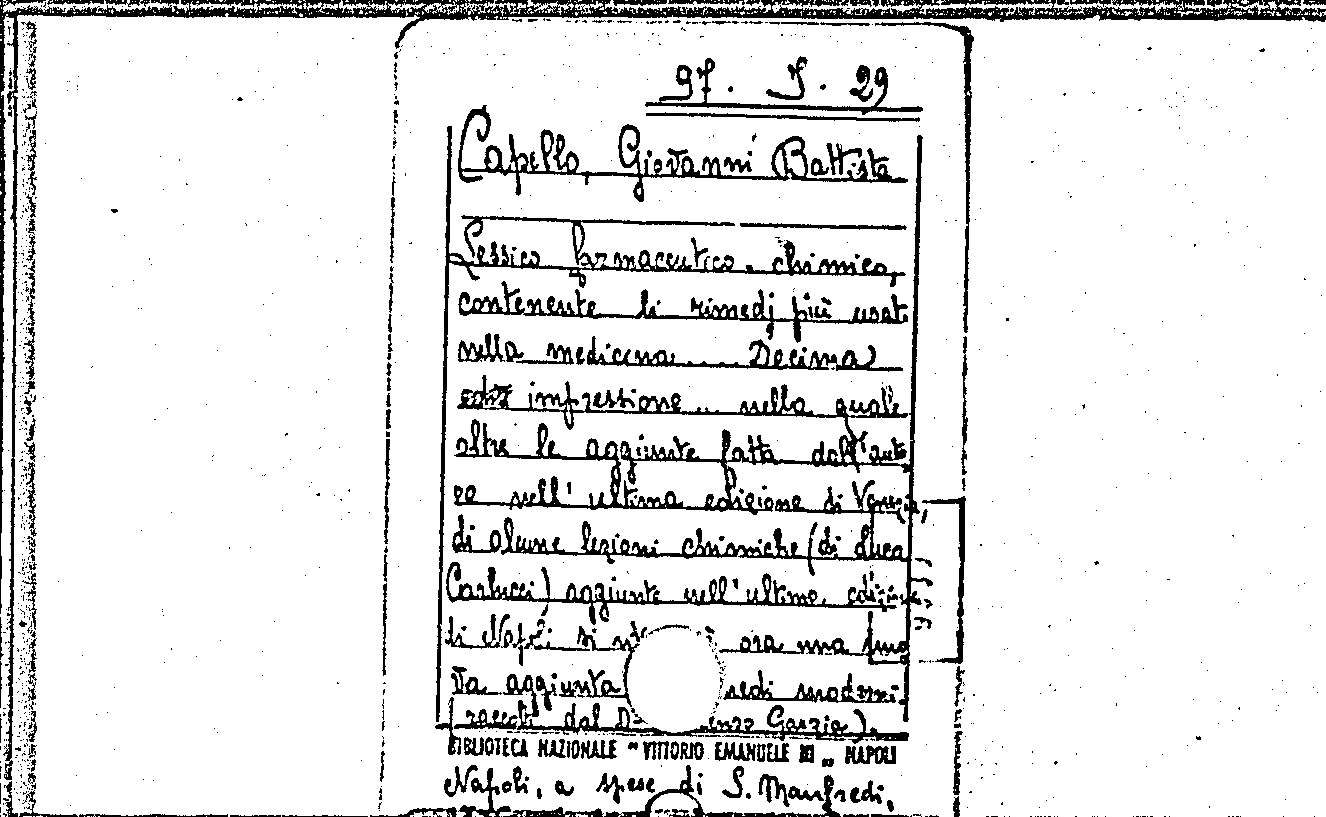 97. J. 29
Capello, Giovanni Battista
Lessico farmaceutico-chimico,
contenente li rimedj più usati
nella medicina... Decima
impressione... nella quale
oltre le aggiunte fatta dall'auto
re nell'ultima edizione di Venezia,
di alcune lezioni chimiche (di Luca
Carlucci) aggiunte nell'ultima edizione
di Napoli si ora una nuo
va aggiunta moderni
(raccolti dal Garzia).
BIBLIOTECA NAZIONALE "VITTORIO EMANUELE III" NAPOLI
Napoli, a spese di S. Manfredi,